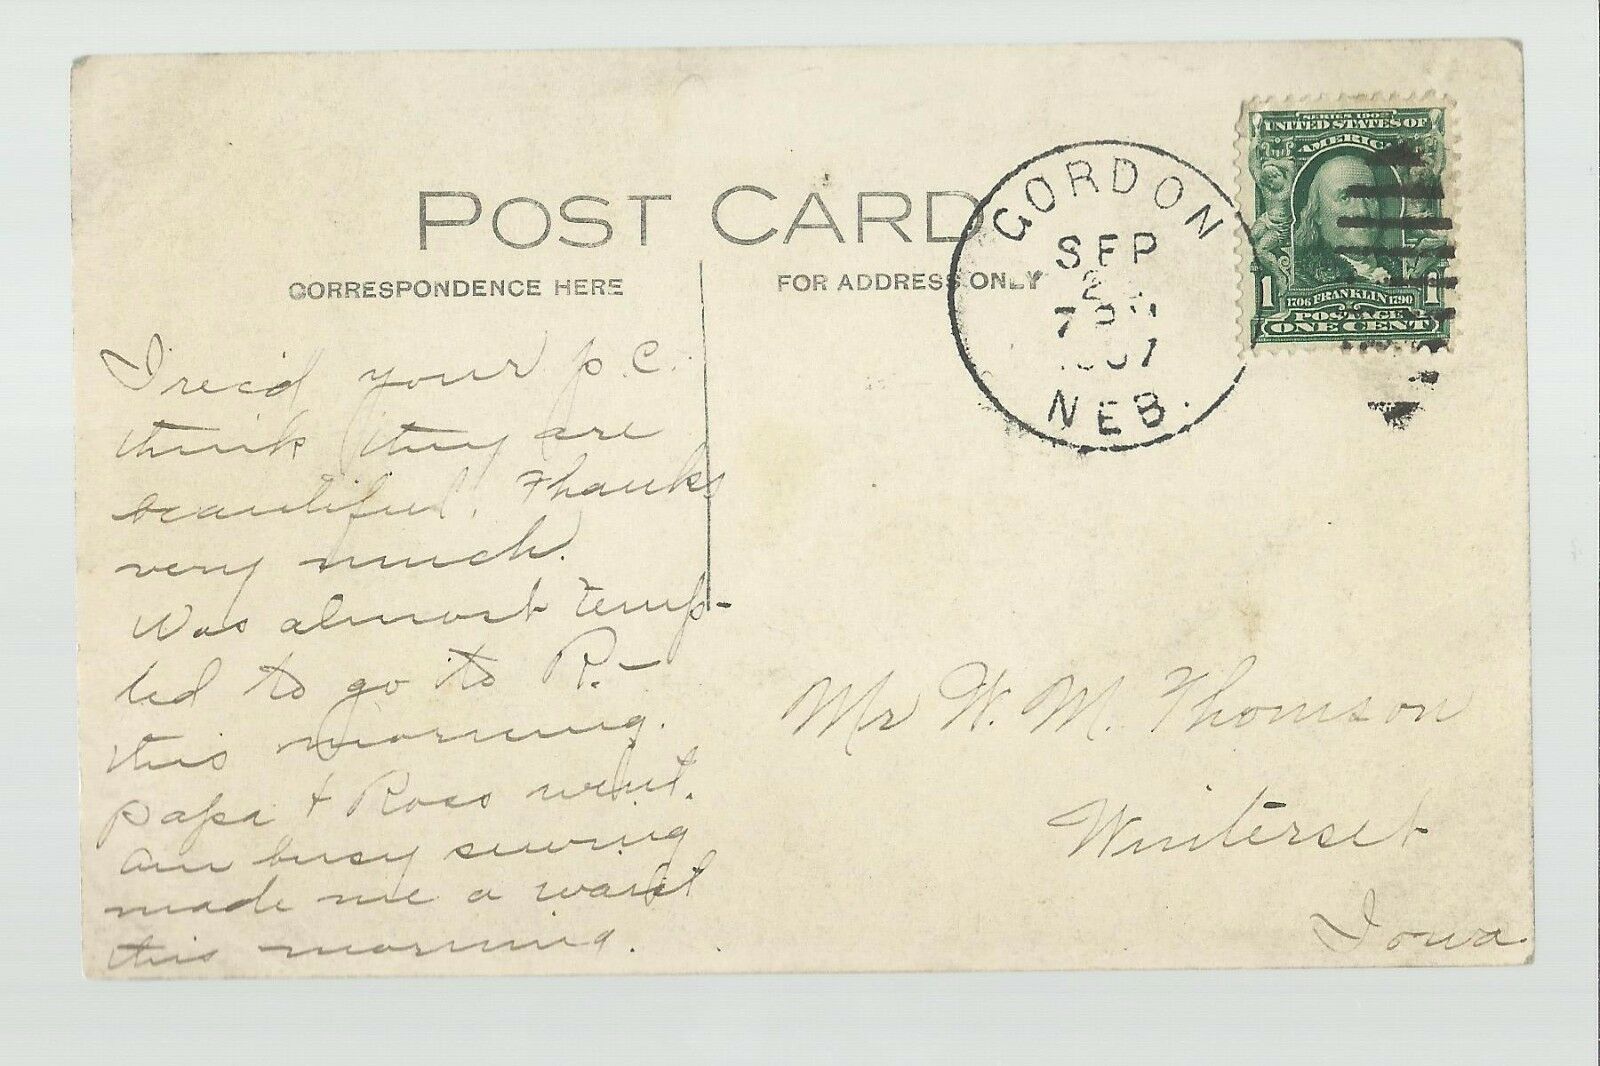 POST CARD
CORRESPONDENCE HERE
FOR ADDRESS ONLY
GORDON
SEP
7
NEB.
SERIES 1902
UNITED STATES OF
AMERICA
1 1706 FRANKLIN 1790 1
POSTAGE
ONE CENT
I rec'd your p.c.
think they are
beautiful. Thanks
very much.
Was almost temp-
ted to go to R.—
this morning.
papa & Ross went.
am busy sewing
made me a waist
this morning.
Mr W. M. Thomson
Winterset
Iowa.